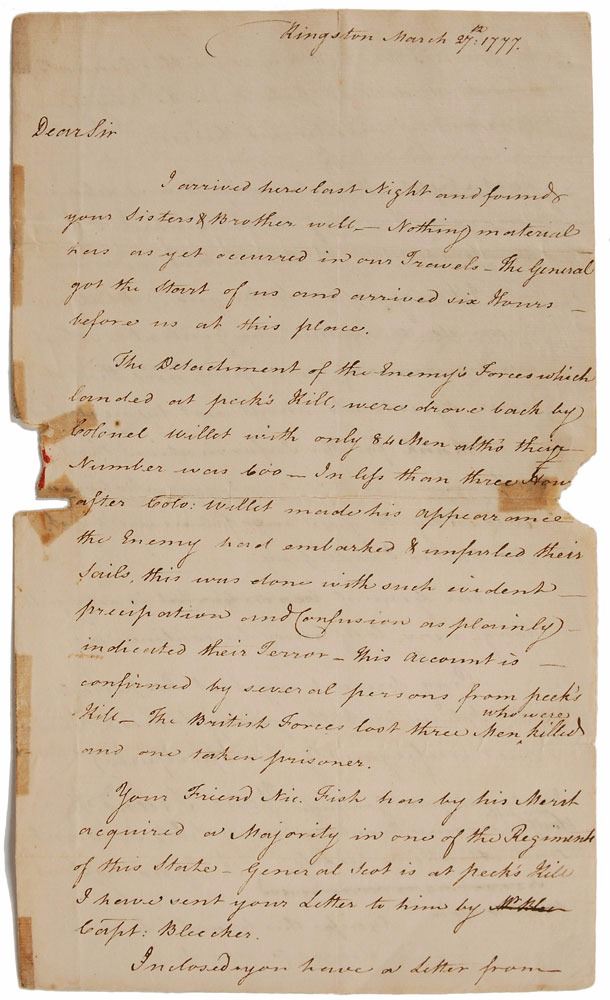 Kingston March 27th: 1777.
Dear Sir
I arrived here last Night and found
your Sisters & Brother well — Nothing material
has as yet occurred in our Travels — The General
got the Start of us and arrived six Hours —
before us at this place.
The Detachment of the Enemy's Forces which
landed at peek's Kill, were drove back by
Colonel Willet with only 84 Men altho' their
Number was 600 — In less than three Hou
after Colo: Willet made his appearance
the Enemy had embarked & unfurled their
Sails, this was done with such evident —
precipitation and Confusion as plainly —
indicated their Terror — This Account is —
confirmed by several persons from peek's
Kill — The British Forces lost three Men, who were killed
and one taken prisoner.
Your Friend Nic. Fish has by his Merit
acquired a Majority in one of the Regiments
of this State — General Scot is at peek's Kill
I have sent your Letter to him by Mr. Blee
Capt: Bleecker.
Inclosed you have a Letter from —